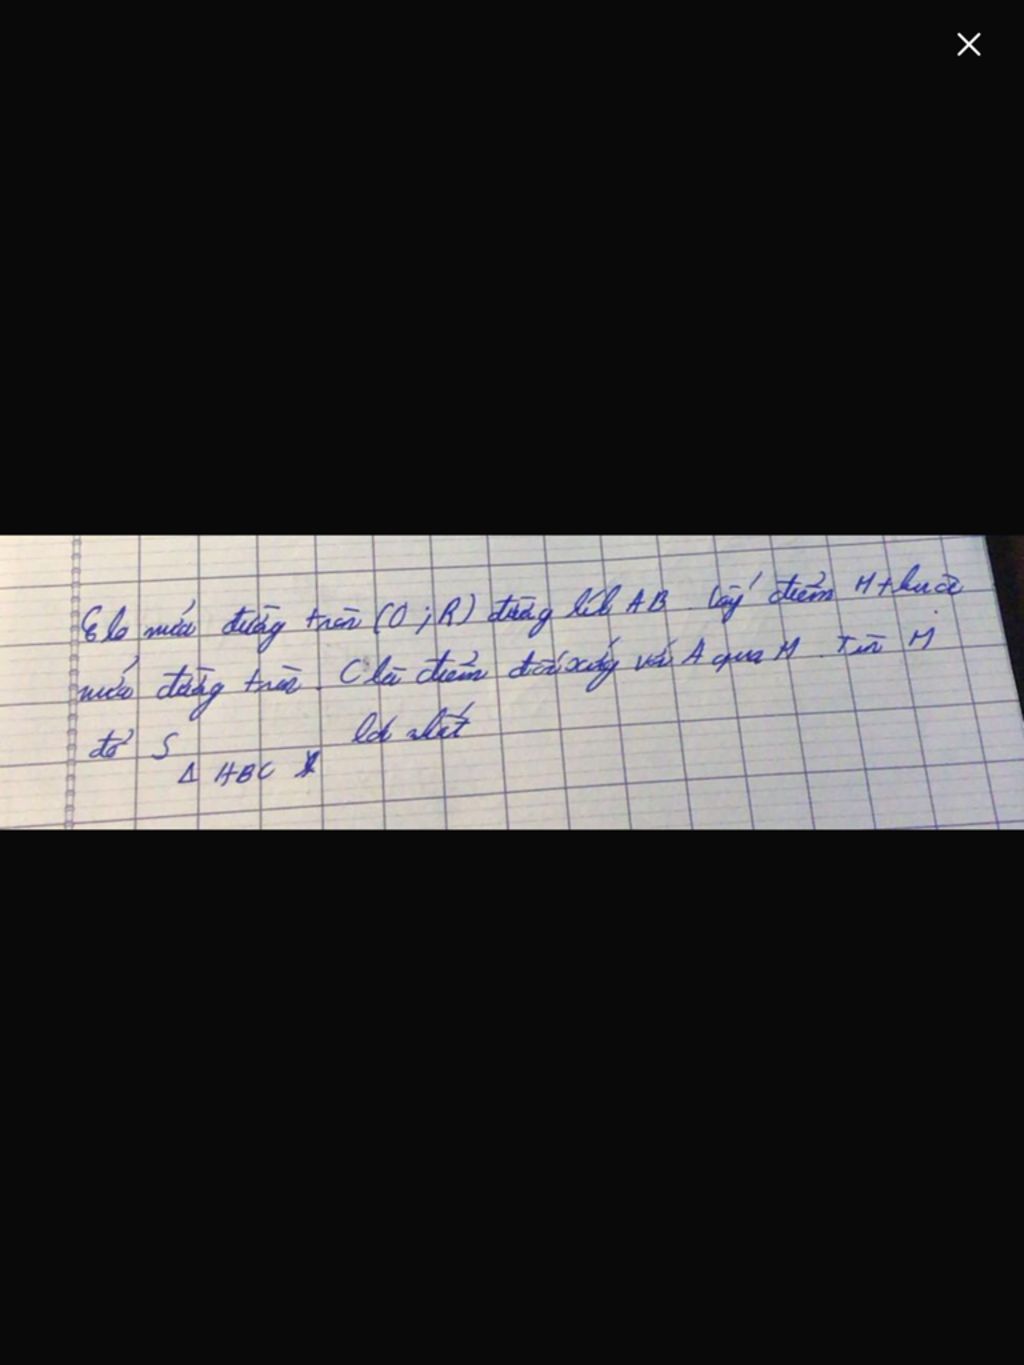 Cho nửa đường tròn (O; R) đường kính AB. Lấy điểm M thuộc
nửa đường tròn. C là điểm đối xứng với A qua M. Tìm M
để S Δ ABC lớn nhất